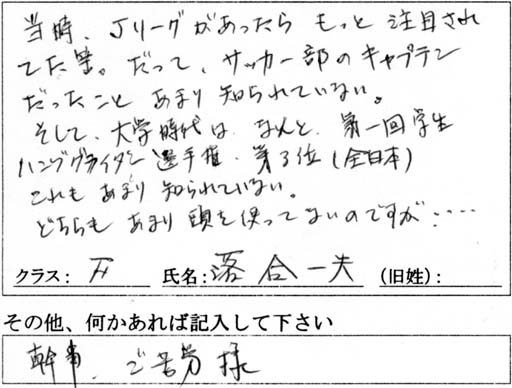 当時、Jリーグがあったら もっと 注目され
てた筈。だって、サッカー部のキャプテン
だったこと あまり 知られていない。
そして、大学時代は、なんと、第一回学生
ハンググライダー 選手権、第3位(全日本)
これも あまり 知られていない。
どちらも あまり 頭を使ってないのですが・・・・
クラス: 氏名:落合一夫 (旧姓):
その他、何かあれば記入して下さい
幹事、ご苦労様